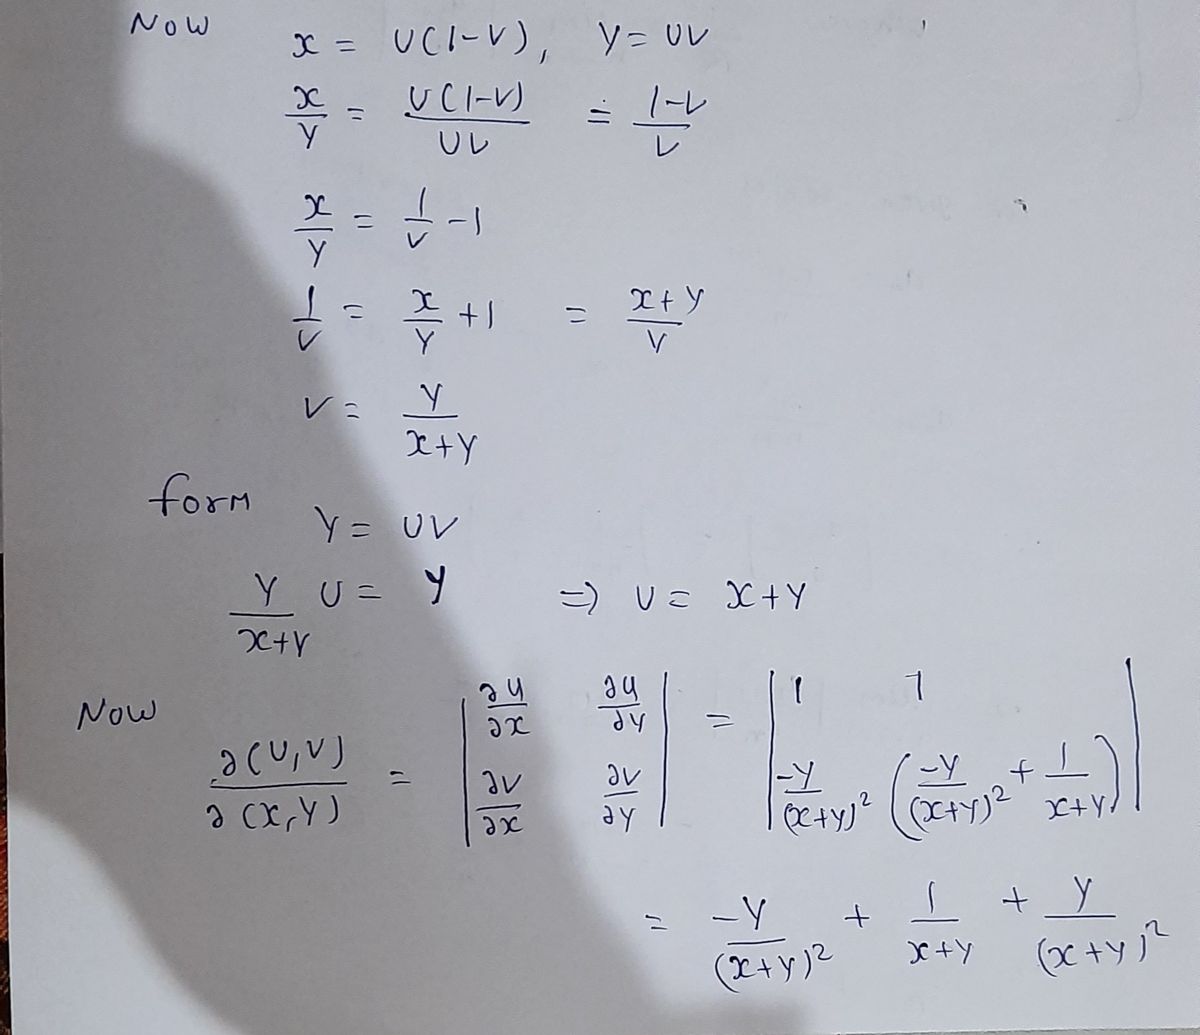 Now x = u(1-v), y = uv
x/y = u(1-v)/uv = 1-v/v
x/y = 1/v - 1
1/v = x/y + 1 = x+y/y
v = y/x+y
form y = uv
y/x+y u = y ⇒ u = x+y
Now ∂(u,v)/∂(x,y) = | ∂u/∂x ∂u/∂y ; ∂v/∂x ∂v/∂y | = | 1 1 ; -y/(x+y)² (-y/(x+y)² + 1/x+y) |
= -y/(x+y)² + 1/x+y + y/(x+y)²